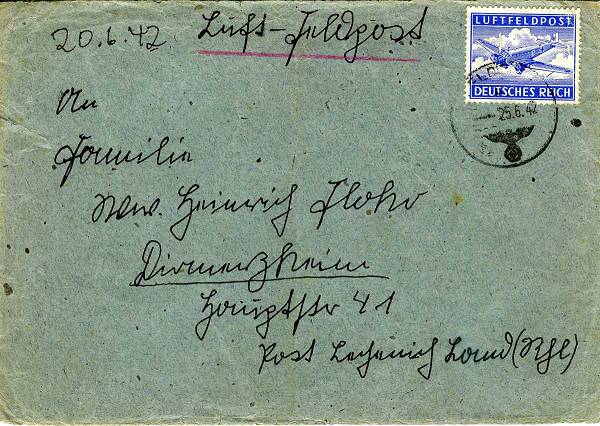 20.6.42 Luft-Feldpost
LUFTFELDPOST
DEUTSCHES REICH
25.6.42
An
Familie
Ww. Heinrich
Dirmerzheim
Hauptstr 41
Post Lechenich Land (Rhl)